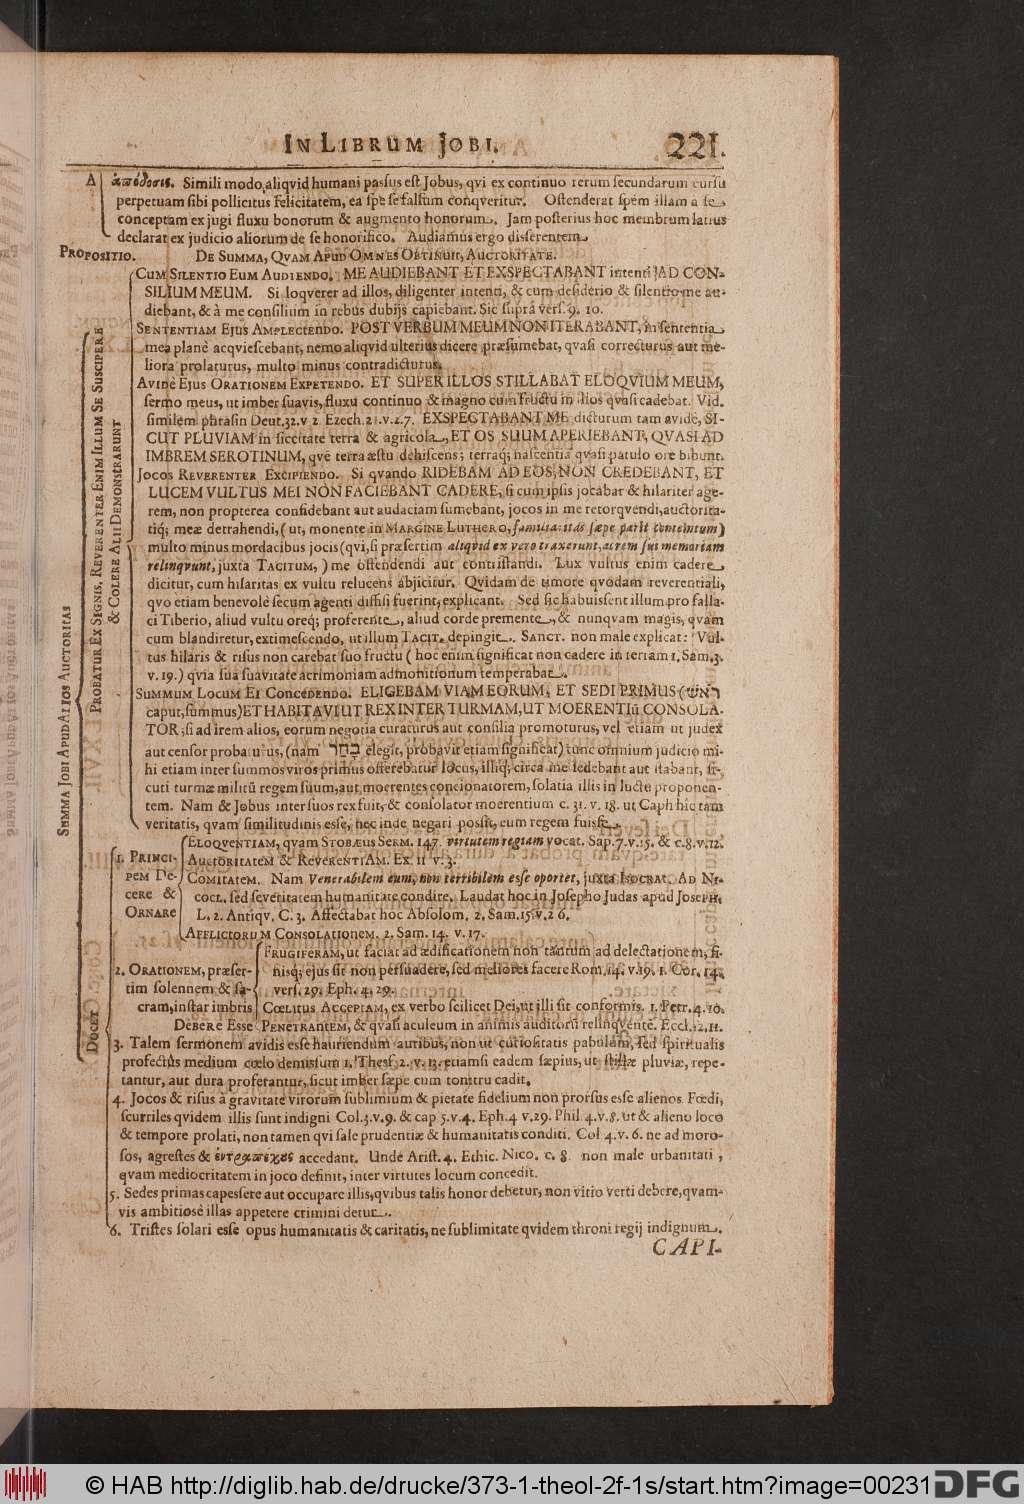 IN LIBRUM JOBI.
221.
A
ἀπόδοσις. Simili modo, aliqvid humani passus est Jobus, qvi ex continuo rerum secundarum cursu
perpetuam sibi pollicitus felicitatem, ea spe se falsum conqveritur. Ostenderat spem illam à se
conceptam ex jugi fluxu bonorum & augmento honorum. Jam posterius hoc membrum latius
declarat ex judicio aliorum de se honorifico. Audiamus ergo disserentem
PROPOSITIO.
DE SUMMA, QVAM APUD OMNES OBTINUIT, AUCTORITATE.
SUMMA JOBI APUD ALIOS AUCTORITAS
PROBATUR EX SIGNIS, REVERENTER ENIM ILLUM SE SUSCIPERE
& COLERE ALII DEMONSTRARUNT
CUM SILENTIO EUM AUDIENDO. ME AUDIEBANT ET EXSPECTABANT intenti AD CON-
SILIUM MEUM. Si loqverer ad illos, diligenter intenti, & cum desiderio & silentio me au-
diebant, & à me consilium in rebus dubijs capiebant. Sic suprà vers. 9. 10.
SENTENTIAM EJUS AMPLECTENDO. POST VERBUM MEUM NON ITERABANT, in sententia
mea planè acqviescebant, nemo aliqvid ulterius dicere præsumebat, qvasi correcturus aut me-
liora prolaturus, multo minus contradicturus.
AVIDÈ EJUS ORATIONEM EXPETENDO. ET SUPER ILLOS STILLABAT ELOQVIUM MEUM,
sermo meus, ut imber suavis, fluxu continuo & magno cum fructu in illos qvasi cadebat. Vid.
similem phrasin Deut. 32. v 2 Ezech. 21. v. 2. 7. EXSPECTABANT ME dicturum tam avidè, SI-
CUT PLUVIAM in siccitate terra & agricola, ET OS SUUM APERIEBANT, QVASI AD
IMBREM SEROTINUM, qvê terra æstu dehiscens; terraq; nascentia qvasi patulo ore bibunt.
JOCOS REVERENTER EXCIPIENDO. Si qvando RIDEBAM AD EOS, NON CREDEBANT, ET
LUCEM VULTUS MEI NON FACIEBANT CADERE, si cum ipsis jocabar & hilariter age-
rem, non propterea confidebant aut audaciam sumebant, jocos in me retorqvendi, auctorita-
tiq; meæ detrahendi, ( ut, monente in MARGINE LUTHERO, familiaritas sæpe parit contemtum)
multo minus mordacibus jocis (qvi, si præsertim aliqvid ex vero traxerunt, acrem sui memoriam
relinqvunt, juxta TACITUM, ) me offendendi aut contristandi. Lux vultus enim cadere
dicitur, cum hilaritas ex vultu relucens abjicitur. Qvidam de timore qvodam reverentiali,
qvo etiam benevolè secum agenti diffisi fuerint, explicant. Sed sic habuissent illum pro falla-
ci Tiberio, aliud vultu oreq; proferente, aliud corde premente, & nunqvam magis, qvàm
cum blandiretur, extimescendo, ut illum TACIT. depingit. SANCT. non male explicat: Vul-
tus hilaris & risus non carebat suo fructu ( hoc enim significat non cadere in terram 1. Sam. 3.
v. 19. ) qvia suâ suavitate acrimoniam admonitionum temperabat.
SUMMUM LOCUM EI CONCEDENDO. ELIGEBAM VIAM EORUM, ET SEDI PRIMUS (ראש
caput, summus) ET HABITAVI UT REX INTER TURMAM, UT MOERENTIû CONSOLA-
TOR; si ad irem alios, eorum negotia curaturus aut consilia promoturus, vel etiam ut judex
aut censor probaturus, (nam בָּחַר elegit, probavit etiam significat) tunc omnium judicio mi-
hi etiam inter summos viros primus offerebatur locus, illiq; circa me sedebant aut stabant, si-
cuti turmæ militû regem suum, aut moerentes concionatorem, solatia illis in luctu proponen-
tem. Nam & Jobus inter suos rex fuit, & consolator moerentium c. 31. v. 18. ut Caph hic tàm
veritatis, qvam similitudinis esse, nec inde negari possit, eum regem fuisse.
DOCET
1. PRINCI-
PEM DE-
CERE &
ORNARE
ELOQVENTIAM, qvam STOBÆUS SERM. 147. virtutem regiam vocat. Sap. 7. v. 15. & c. 8. v. 12.
AUCTORITATEM & REVERENTIAM. Ex. 11 v. 3.
COMITATEM. Nam Venerabilem eum, non terribilem esse oportet, juxta ISOCRAT. AD NI-
COCL. sed severitatem humanitate condire. Laudat hoc in Josepho Judas apud JOSEPH.
L. 2. Antiqv. C. 3. Affectabat hoc Absolom. 2. Sam. 15. v. 2 6.
AFFLICTORUM CONSOLATIONEM. 2. Sam. 14. v. 17.
2. ORATIONEM, præser-
tim solennem & sa-
cram, instar imbris
DEBERE ESSE
FRUGIFERAM, ut faciat ad ædificationem non tantùm ad delectationem, fi-
nisq; ejus sit non persuadere, sed meliores facere Rom. 14. v. 19. 1. Cor. 14.
vers. 29. Eph. 4. 29.
COELITUS ACCEPTAM, ex verbo scilicet Dei, ut illi sit conformis. 1. Petr. 4. 10.
PENETRANTEM, & qvasi aculeum in animis auditorû relinqventê. Eccl. 12. 11.
3. Talem sermonem avidis esse hauriendum auribus, non ut curiositatis pabulum, sed spiritualis
profectûs medium coelo demissum 1. Thes. 2. v. 13. etiamsi eadem sæpius, ut stillæ pluviæ, repe-
tantur, aut dura proferantur, sicut imber sæpe cum tonitru cadit.
4. Jocos & risus à gravitate virorum sublimium & pietate fidelium non prorsus esse alienos. Foedi,
scurriles qvidem illis sunt indigni Col. 3. v. 9. & cap 5. v. 4. Eph. 4 v. 29. Phil 4. v. 8. ut & alieno loco
& tempore prolati, non tamen qvi sale prudentiæ & humanitatis conditi. Col. 4. v. 6. ne ad moro-
sos, agrestes & ἐντραπέλους accedant. Undè Arist. 4. Ethic. NICO. c. 8. non male urbanitati,
qvam mediocritatem in joco definit, inter virtutes locum concedit.
5. Sedes primas capessere aut occupare illis, qvibus talis honor debetur, non vitio verti debere, qvam-
vis ambitiosè illas appetere crimini detur.
6. Tristes solari esse opus humanitatis & caritatis, ne sublimitate qvidem throni regij indignum.
CAPI-
© HAB http://diglib.hab.de/drucke/373-1-theol-2f-1s/start.htm?image=00231
DFG